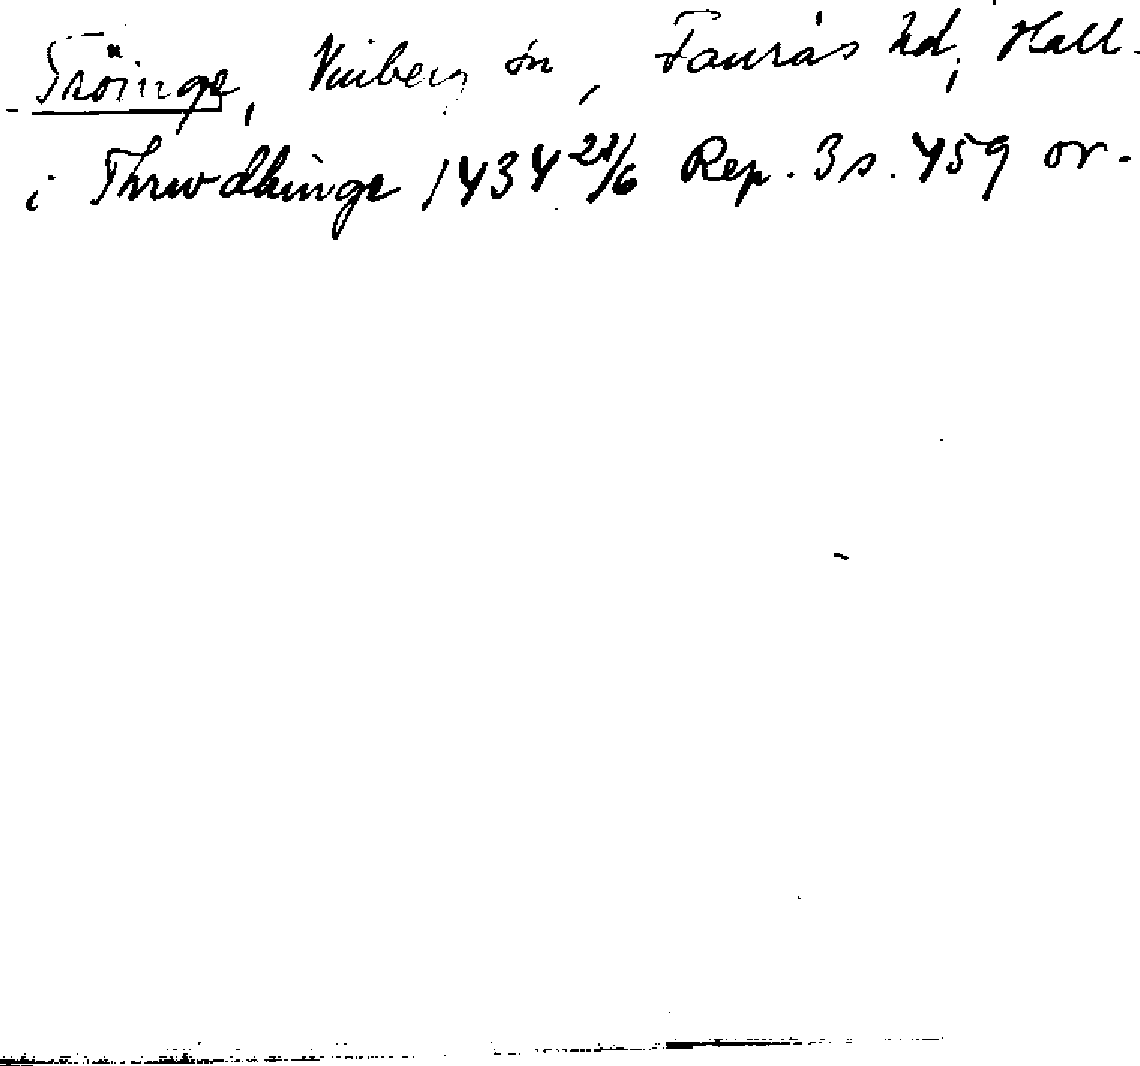 Tröinge, Vinberg sn, Faurås hd, Hall.
i Thrwdhinge 1434 21/6 Rep. 3 s. 459 or.